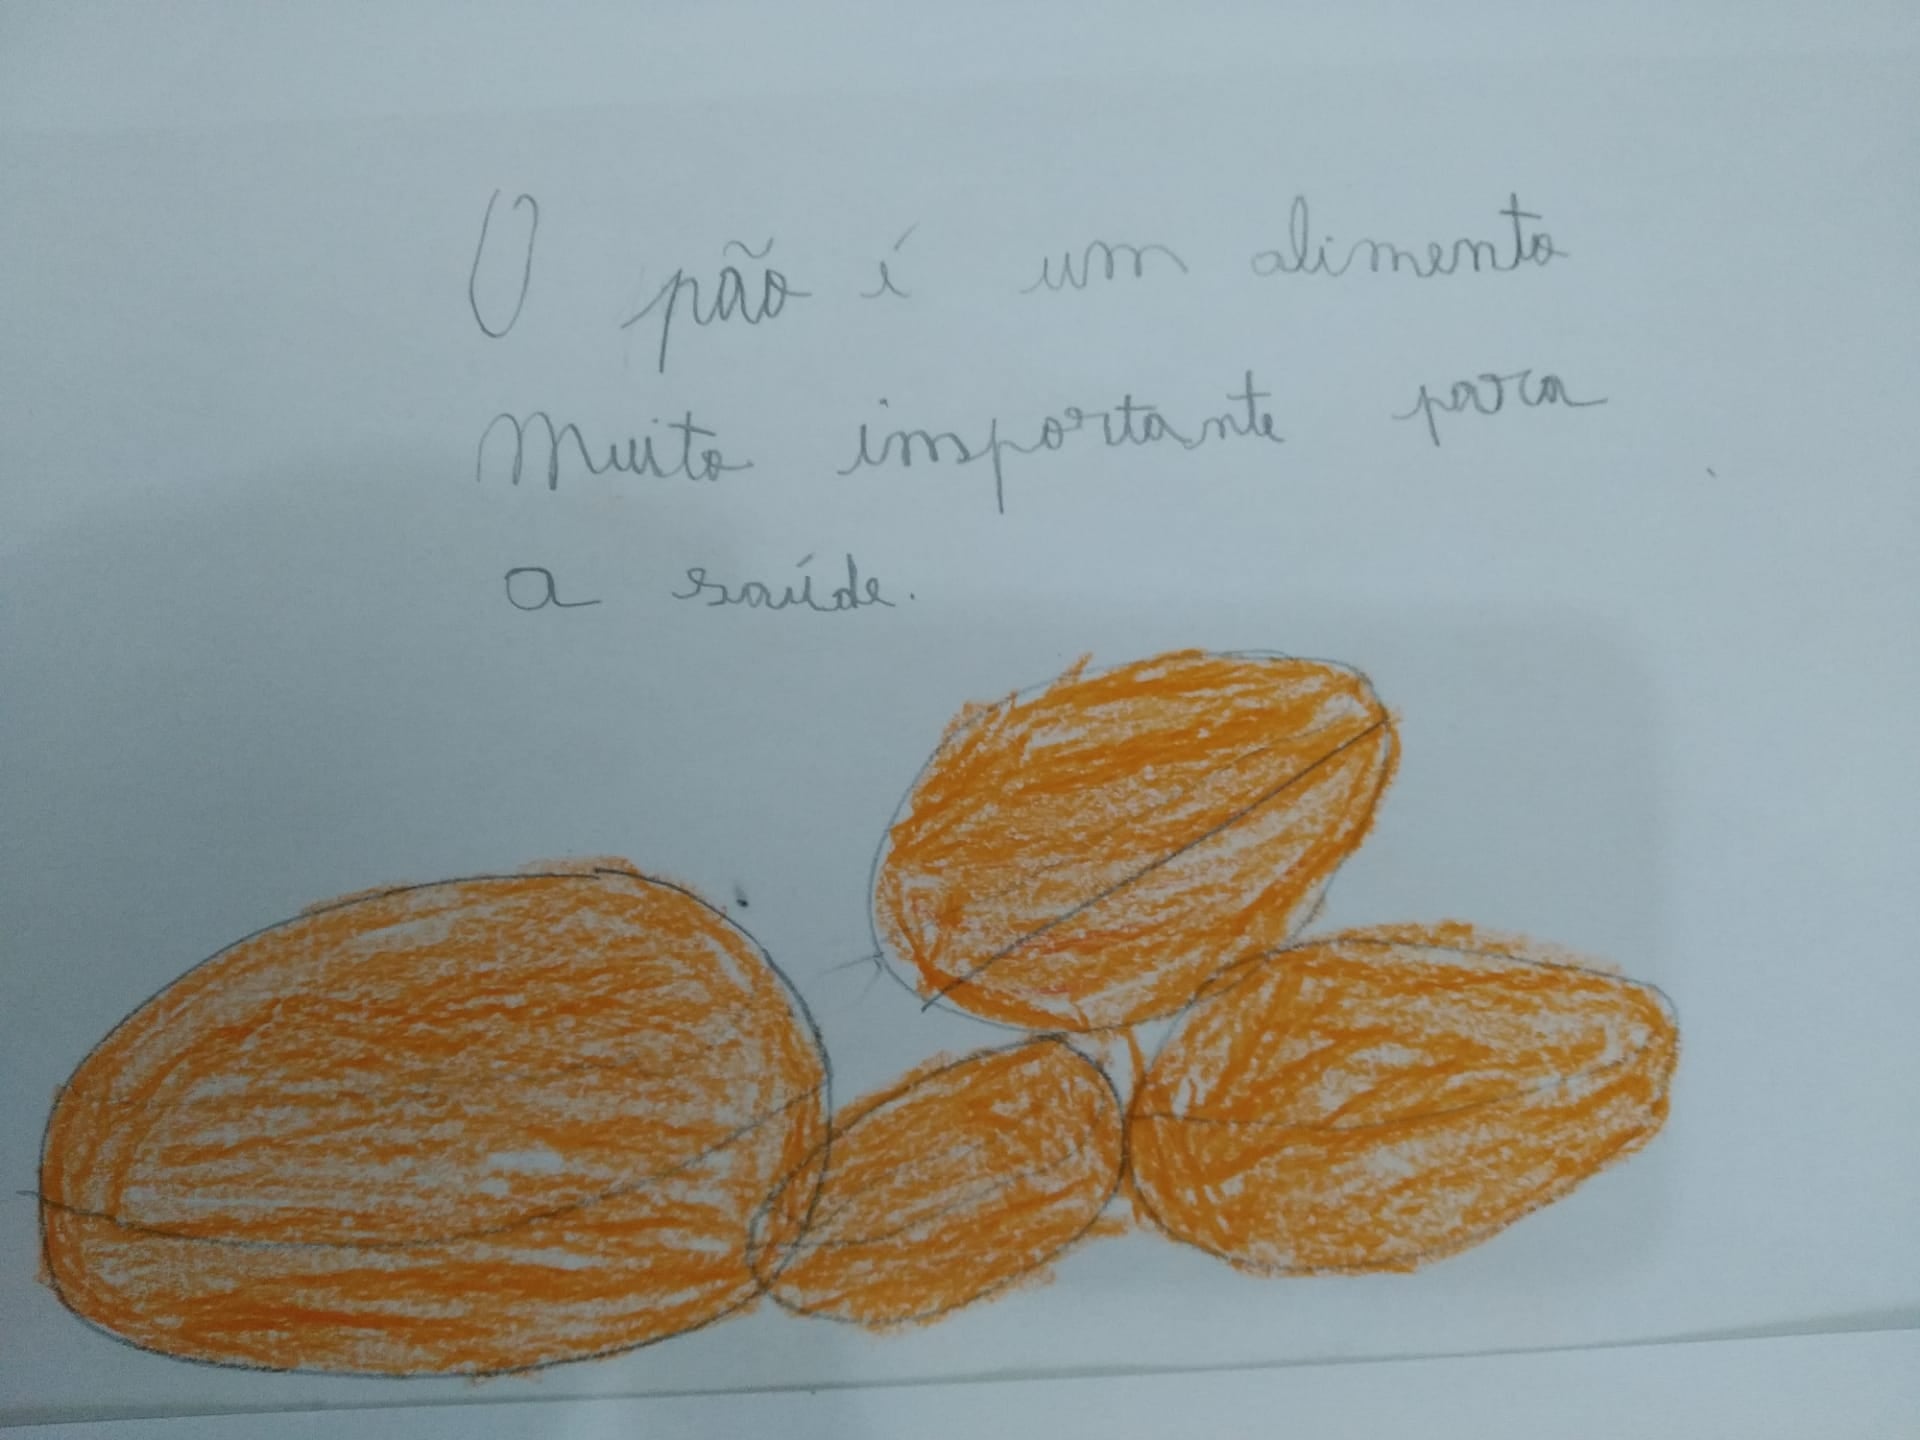 O pão é um alimento
Muito importante para
a saúde.